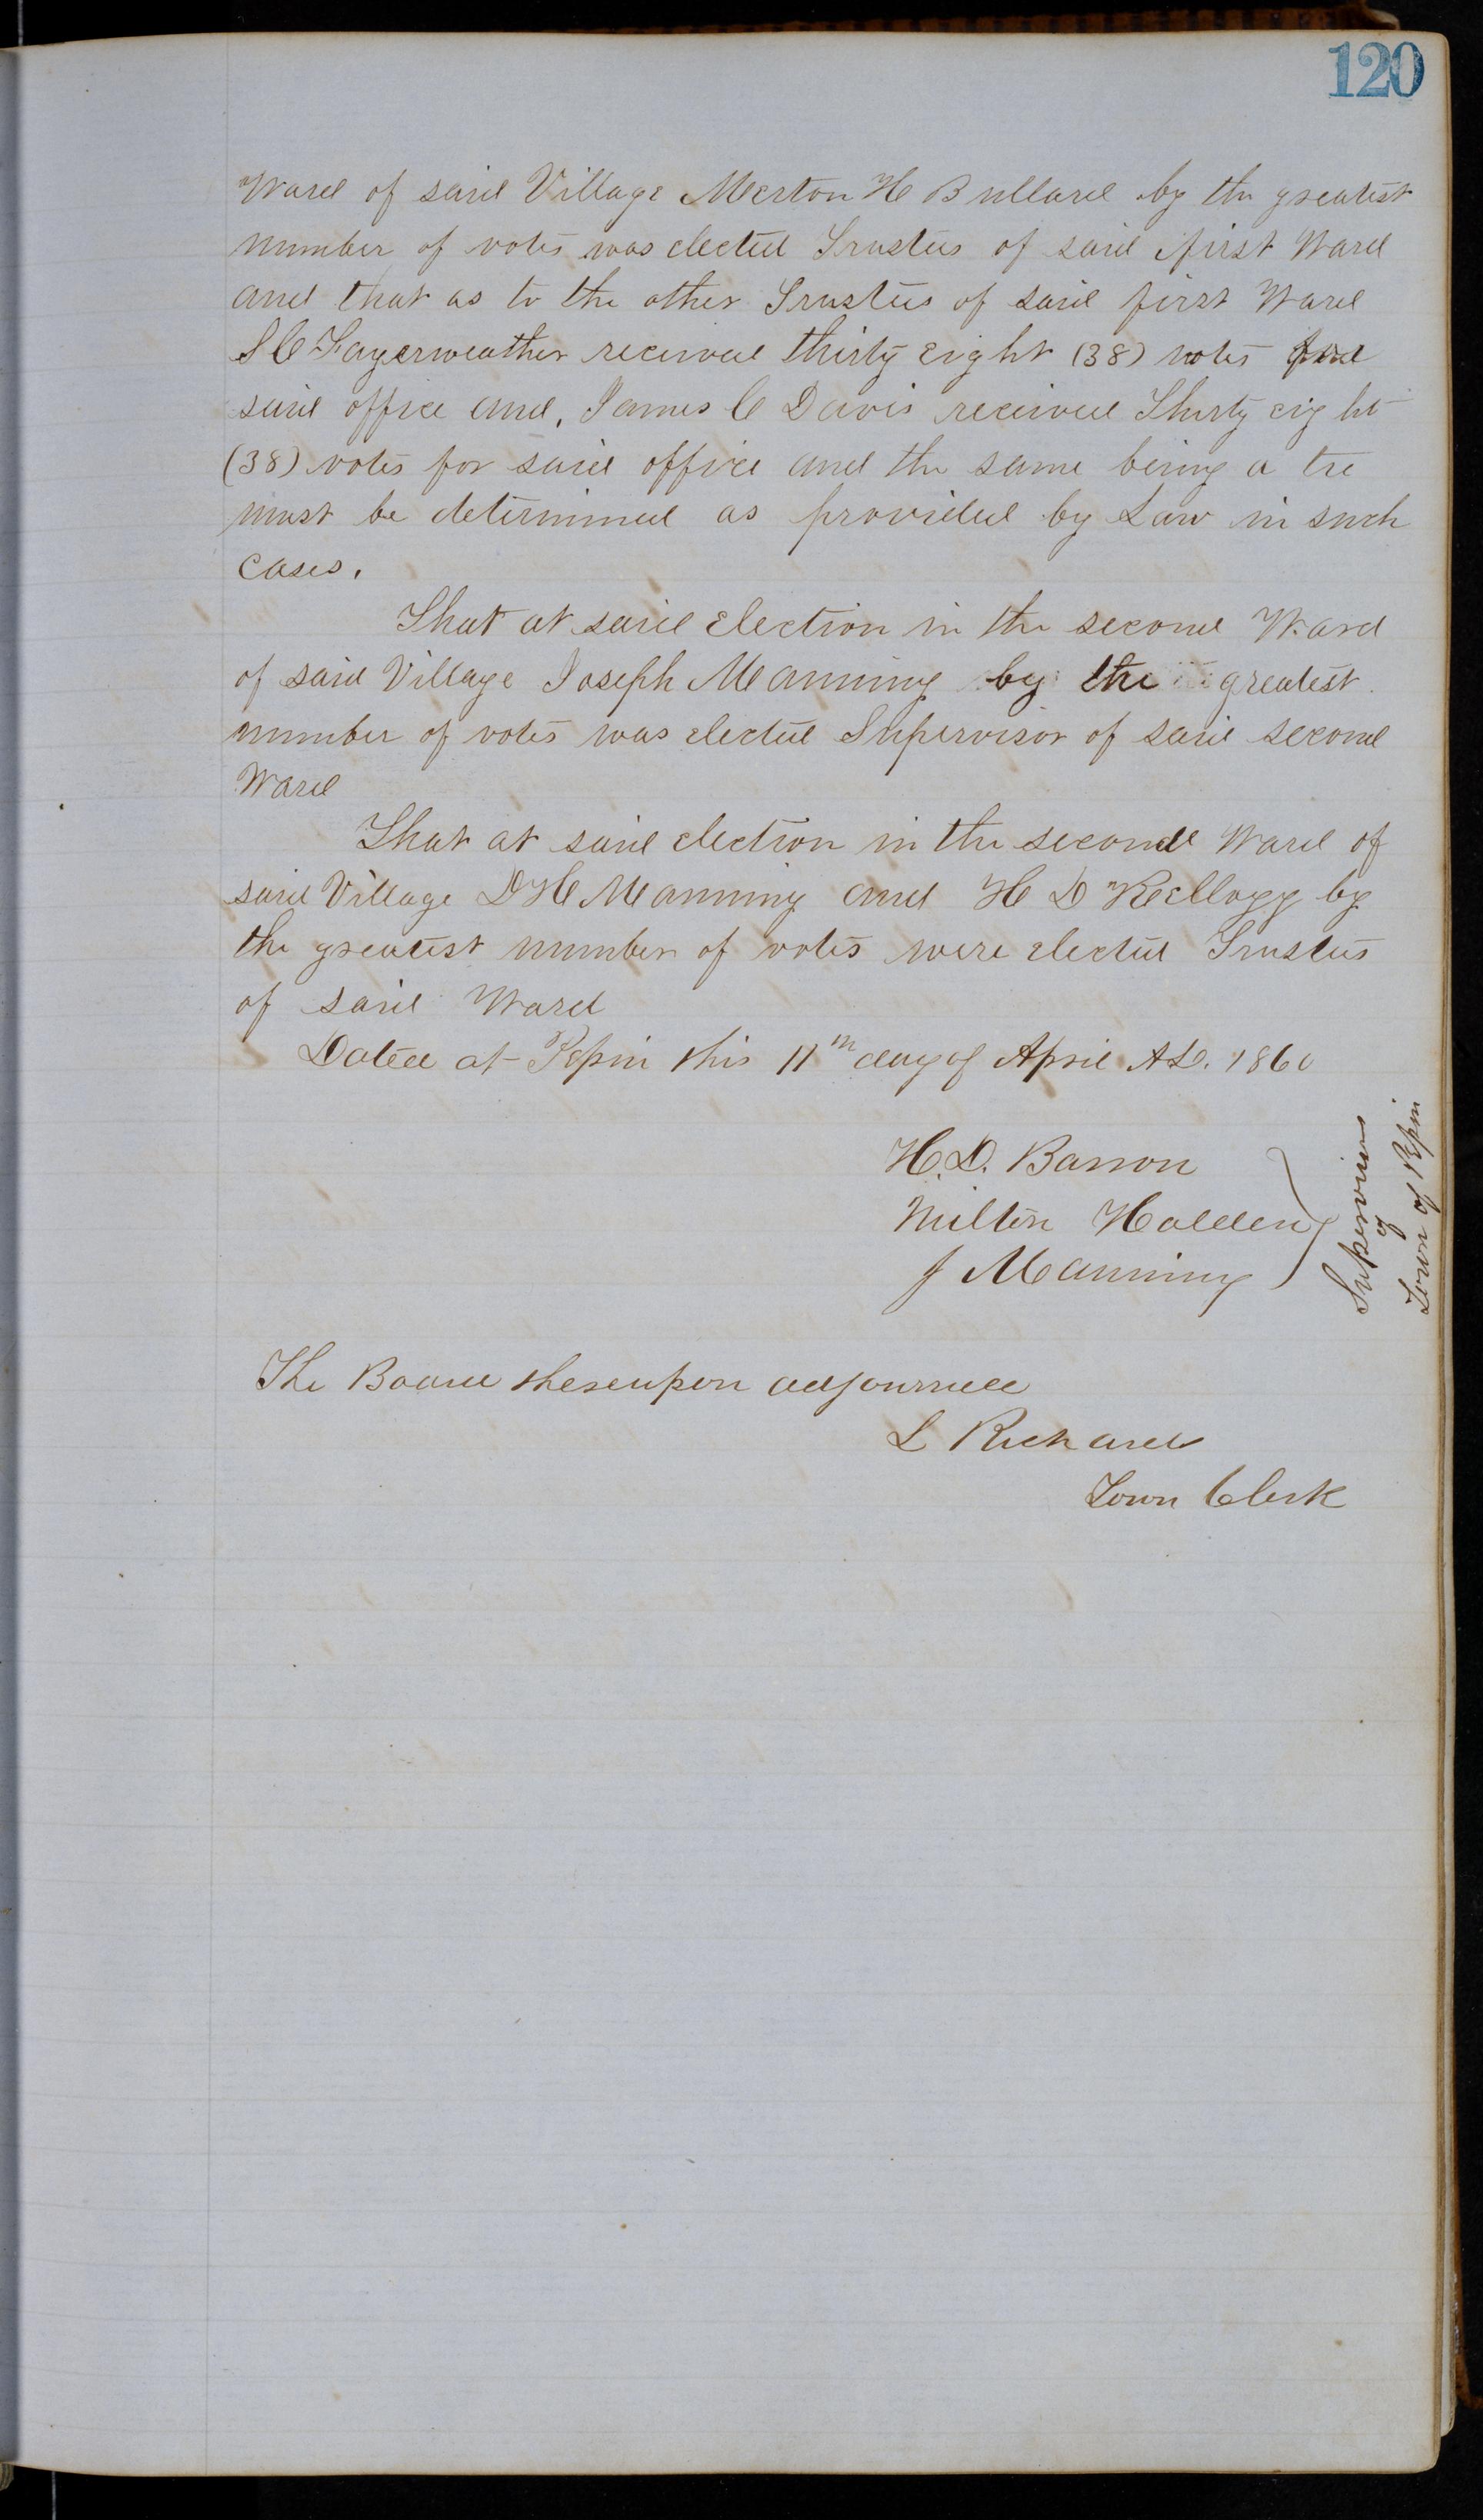 120
Ward of said Village Merton H Bullard by the greatest
number of votes was elected Trustees of said first Ward
and that as to the other Trustees of said first Ward
S C Fayerweather received thirty eight (38) votes for
said office and, James C Davis received Thirty eight
(38) votes for said office and the same being a tie
must be determined as provided by Law in such
cases.
That at said Election in the second Ward
of said Village Joseph Manning by the greatest
number of votes was elected Supervisor of said second
Ward
That at said election in the second Ward of
said Village D H Manning and H D Kellogg by
the greatest number of votes were elected Trustees
of said Ward
Dated at Pepin this 11th day of April A D. 1860
H. D. Barron
Milton Holden
J Manning
Supervisors
of
Town of Pepin
The Board thereupon adjourned
L Richards
Town Clerk